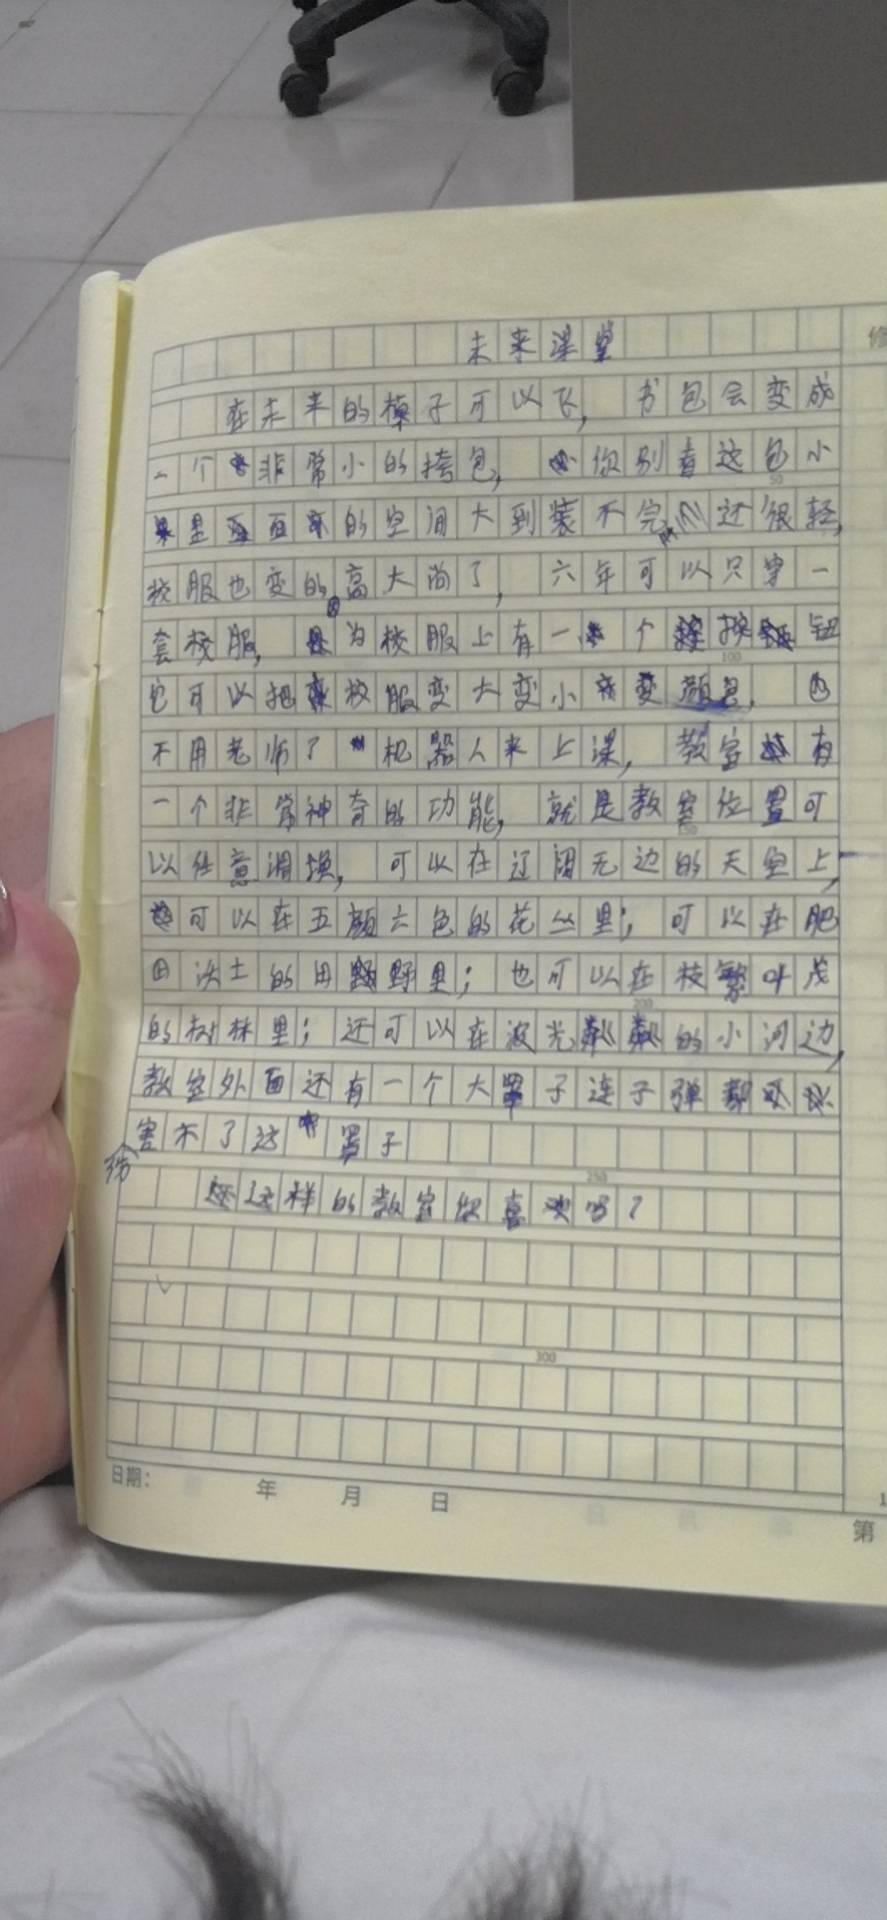 未来课堂
在未来的模子可以飞，书包会变成
一个非常小的挎包，你别看这包小
里面的空间大到装不完，还很轻，
校服也变的高大尚了，六年可以只穿一
套校服，因为校服上有一个按钮
它可以把校服变大变小变颜色，
不用老师了机器人来上课，教室有
一个非常神奇的功能，就是教室位置可
以任意调换，可以在辽阔无边的天空上，
可以在五颜六色的花丛里；可以在肥
田沃土的田野里；也可以在枝繁叶茂
的树林里；还可以在波光粼粼的小河边，
教室外面还有一个大罩子连子弹都
伤害不了这罩子
这样的教室你喜欢吗？
修
50
100
150
200
250
300
日期： 年 月 日
第